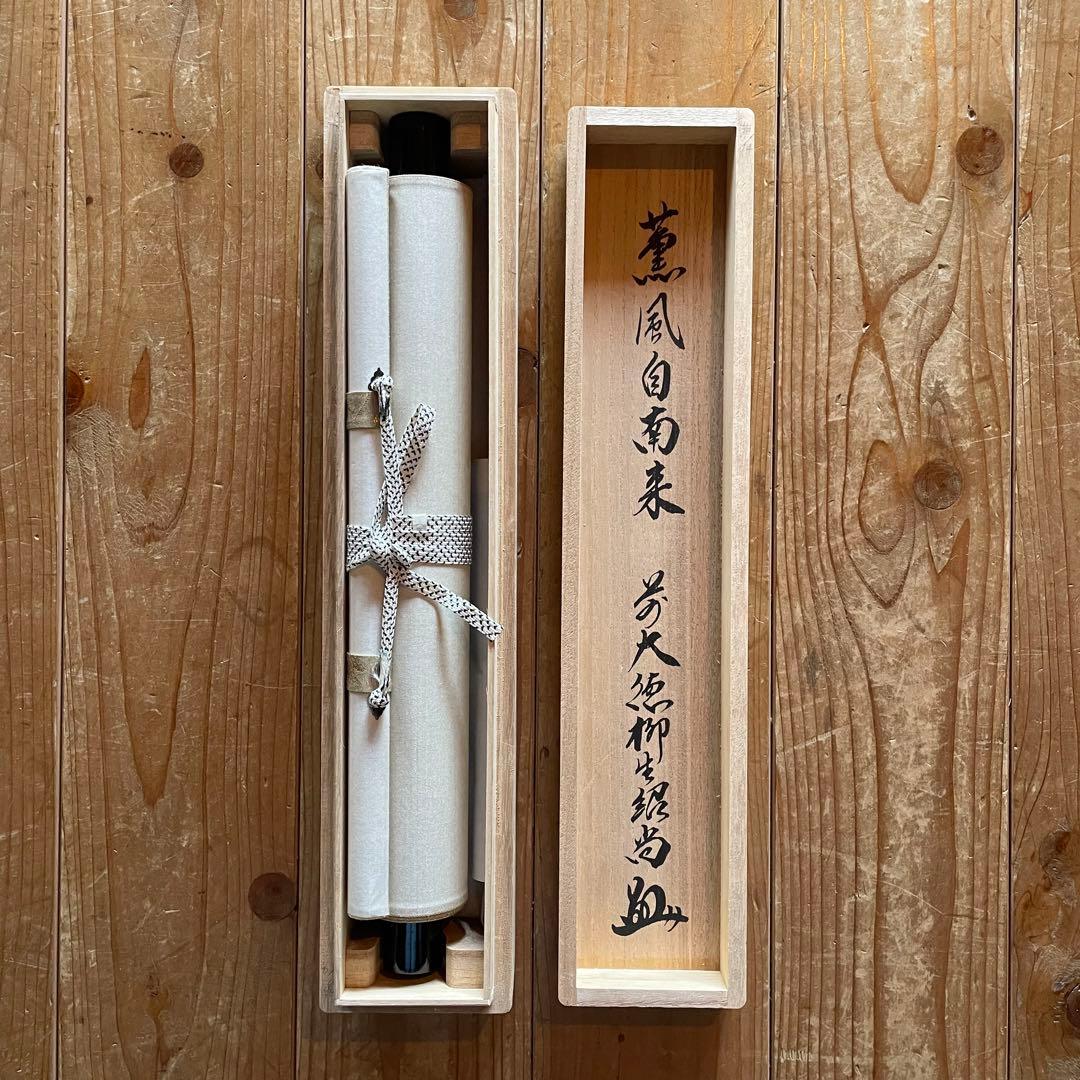 薫風自南来 前大徳柳生紹尚